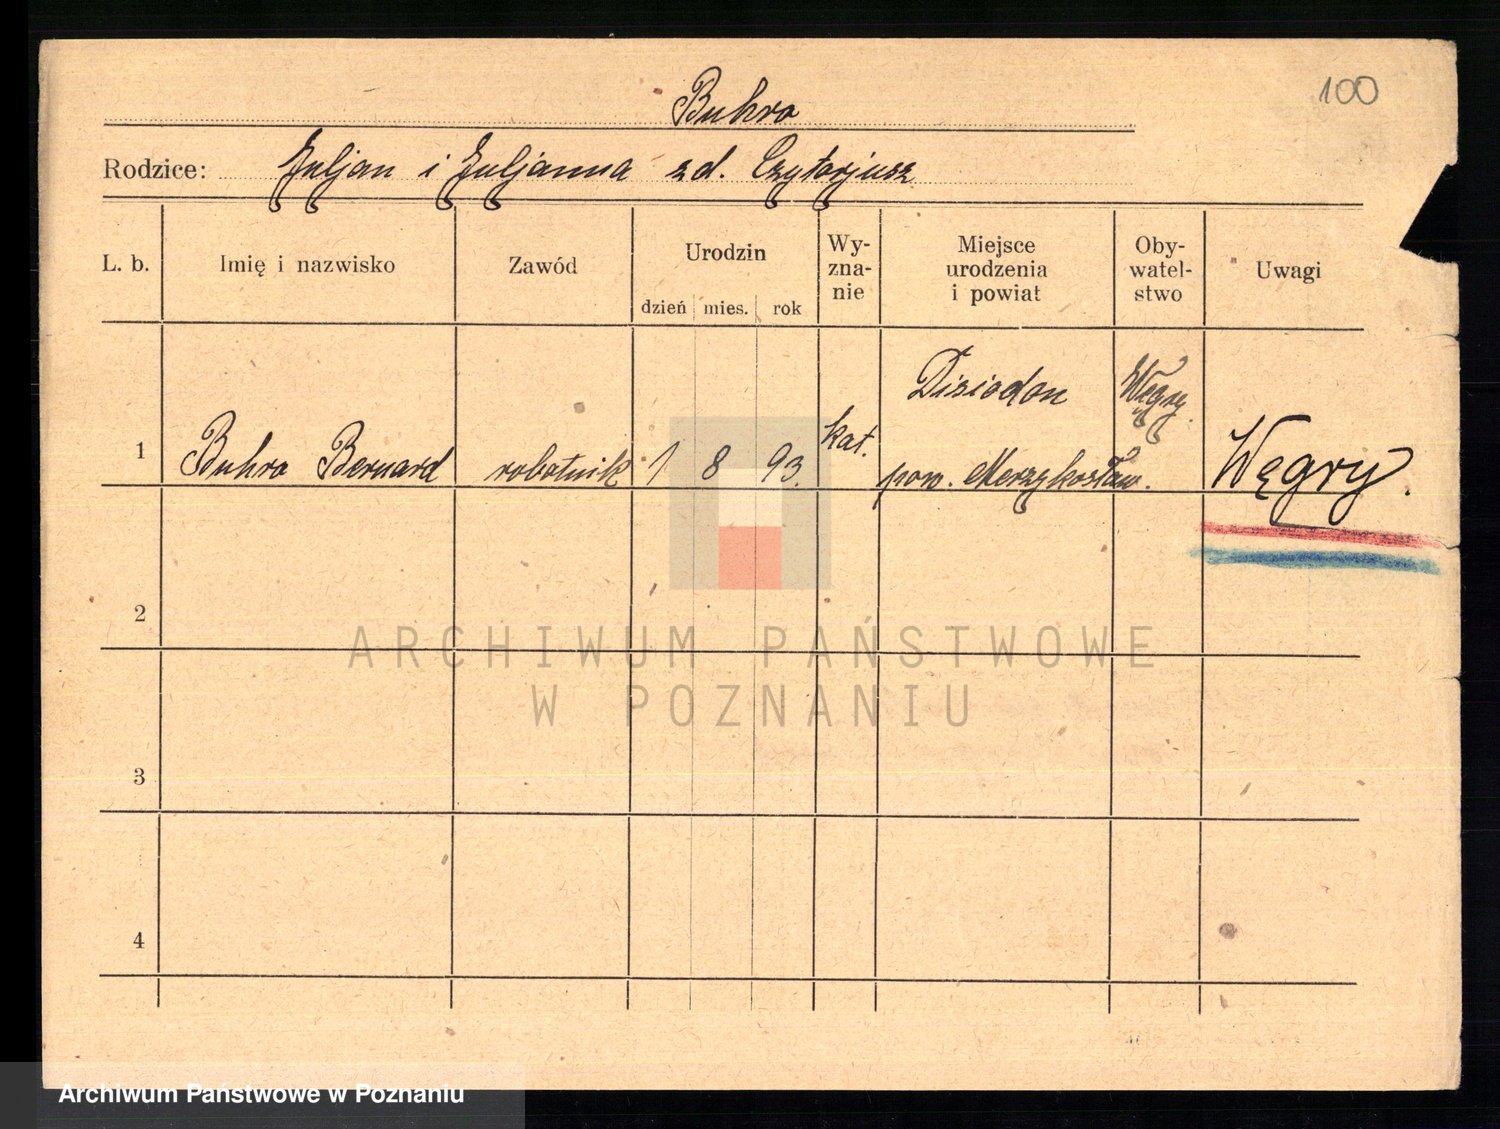 100
Buhro
Rodzice: Juljan i Juljanna zd. Czytarjusz
L. b. Imię i nazwisko Zawód Urodzin dzień mies. rok Wy-zna-nie Miejsce urodzenia i powiat Oby-watel-stwo Uwagi
1 Buhro Bernard robotnik 1 8 93. kat. Disiodon pow. Merzykosław. Węgry. Węgry.
2
3
4
ARCHIWUM PAŃSTWOWE
W POZNANIU
Archiwum Państwowe w Poznaniu